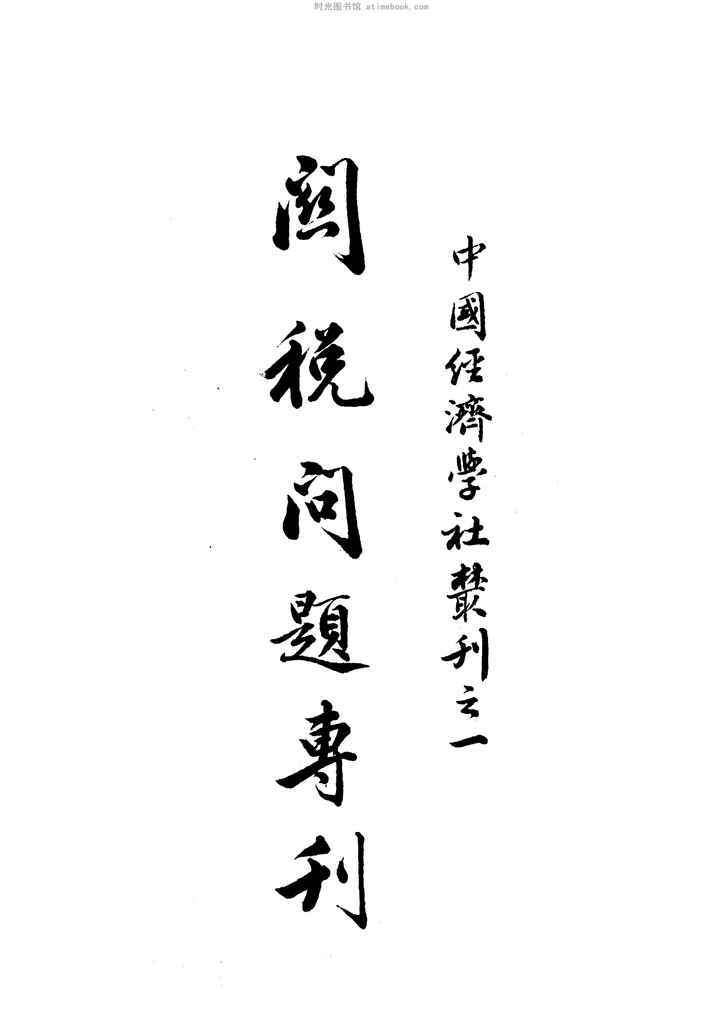 时光图书馆 atimebook.com
中國經濟學社叢刊之一
関税問題專刊